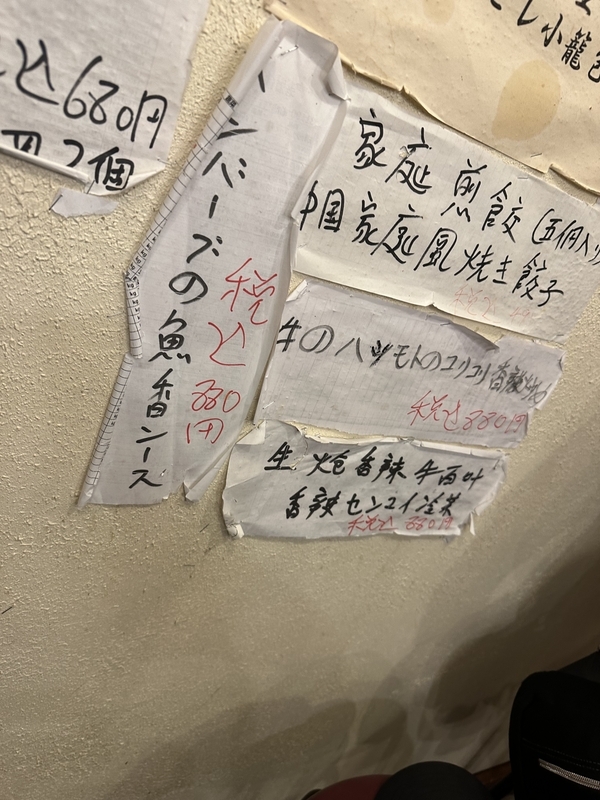 込680円
2個
ンバーズの魚香ソース
税込
880
円
小籠包
家庭煎餃(五個入り
中国家庭風焼き餃子
牛のハツモトのコリコリ香
税込880円
生炝香辣牛百叶
香辣センマイ冷菜
税込880円